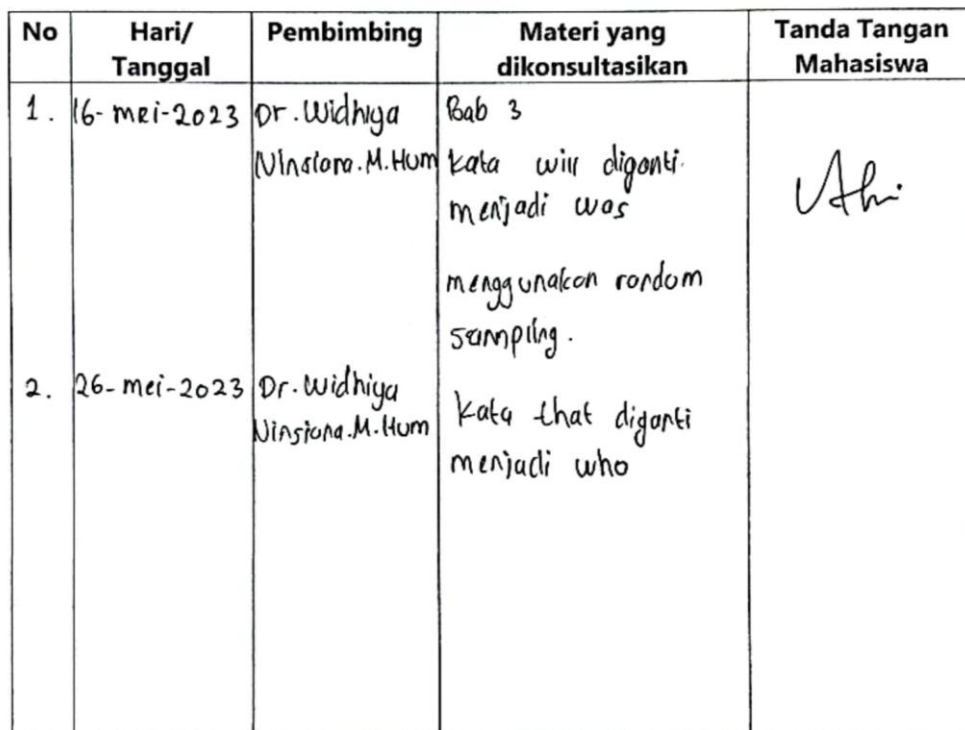 No Hari/ Tanggal Pembimbing Materi yang dikonsultasikan Tanda Tangan Mahasiswa
1. 16-mei-2023 Dr. Widhiya Bab 3
Ninsiana.M.Hum kata will diganti
menjadi was
menggunakan random
sampling.
2. 26-mei-2023 Dr. Widhiya
Ninsiana.M.Hum Kata that diganti
menjadi who